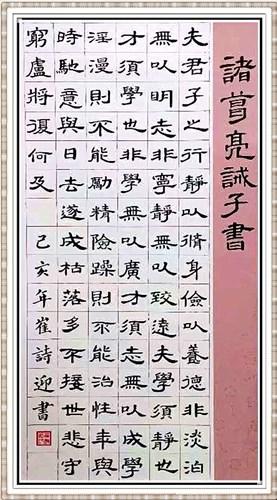 諸葛亮誡子書
夫君子之行靜以脩身儉以養德非淡泊
無以明志非寧靜無以致遠夫學須靜也
才須學也非學無以廣才須志無以成學
淫漫則不能勵精險躁則不能治性年與
時馳意與日去遂成枯落多不接世悲守
窮盧將復何及
己亥年崔詩迎書